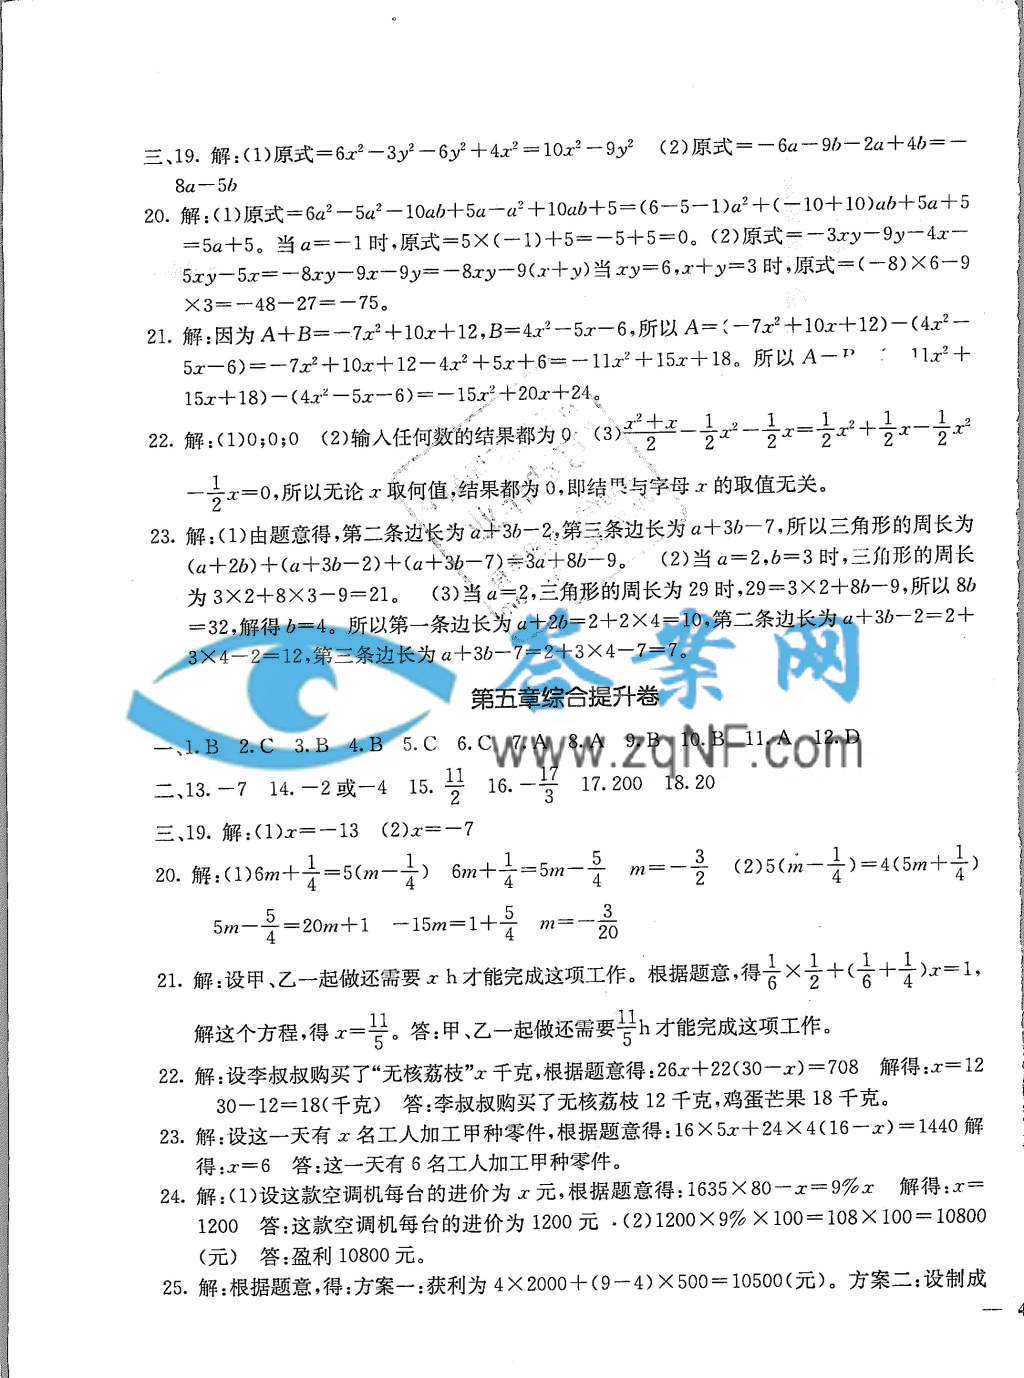 三、19. 解:(1)原式=6x²-3y²-6y²+4x²=10x²-9y² (2)原式=-6a-9b-2a+4b=-
8a-5b
20. 解:(1)原式=6a²-5a²-10ab+5a-a²+10ab+5=(6-5-1)a²+(-10+10)ab+5a+5
=5a+5。当a=-1时,原式=5×(-1)+5=-5+5=0。(2)原式=-3xy-9y-4x-
5xy-5x=-8xy-9x-9y=-8xy-9(x+y)当xy=6,x+y=3时,原式=(-8)×6-9
×3=-48-27=-75。
21. 解:因为A+B=-7x²+10x+12,B=4x²-5x-6,所以A=(-7x²+10x+12)-(4x²-
5x-6)=-7x²+10x+12-4x²+5x+6=-11x²+15x+18。所以A- 11x²+
15x+18)-(4x²-5x-6)=-15x²+20x+24。
22. 解:(1)0;0;0 (2)输入任何数的结果都为0 (3)(x²+x)/2-1/2x²-1/2x=1/2x²+1/2x-1/2x²
-1/2x=0,所以无论x取何值,结果都为0,即结果与字母x的取值无关。
23. 解:(1)由题意得,第二条边长为a+3b-2,第三条边长为a+3b-7,所以三角形的周长为
(a+2b)+(a+3b-2)+(a+3b-7)=3a+8b-9。 (2)当a=2,b=3时,三角形的周长
为3×2+8×3-9=21。 (3)当a=2,三角形的周长为29时,29=3×2+8b-9,所以8b
=32,解得b=4。所以第一条边长为a+2b=2+2×4=10,第二条边长为a+3b-2=2+
3×4-2=12,第三条边长为a+3b-7=2+3×4-7=7。
答案网
www.zqNF.com
第五章综合提升卷
一、1.B 2.C 3.B 4.B 5.C 6.C 7.A 8.A 9.B 10.B 11.A 12.D
二、13.-7 14.-2或-4 15. 11/2 16.-17/3 17.200 18.20
三、19. 解:(1)x=-13 (2)x=-7
20. 解:(1)6m+1/4=5(m-1/4) 6m+1/4=5m-5/4 m=-3/2 (2)5(m-1/4)=4(5m+1/4)
5m-5/4=20m+1 -15m=1+5/4 m=-3/20
21. 解:设甲、乙一起做还需要x h才能完成这项工作。根据题意,得1/6×1/2+(1/6+1/4)x=1,
解这个方程,得x=11/5。答:甲、乙一起做还需要11/5h才能完成这项工作。
22. 解:设李叔叔购买了“无核荔枝”x千克,根据题意得:26x+22(30-x)=708 解得:x=12
30-12=18(千克) 答:李叔叔购买了无核荔枝12千克,鸡蛋芒果18千克。
23. 解:设这一天有x名工人加工甲种零件,根据题意得:16×5x+24×4(16-x)=1440 解
得:x=6 答:这一天有6名工人加工甲种零件。
24. 解:(1)设这款空调机每台的进价为x元,根据题意得:1635×80-x=9%x 解得:x=
1200 答:这款空调机每台的进价为1200元·(2)1200×9%×100=108×100=10800
(元) 答:盈利10800元。
25. 解:根据题意,得:方案一:获利为4×2000+(9-4)×500=10500(元)。方案二:设制成
— 4